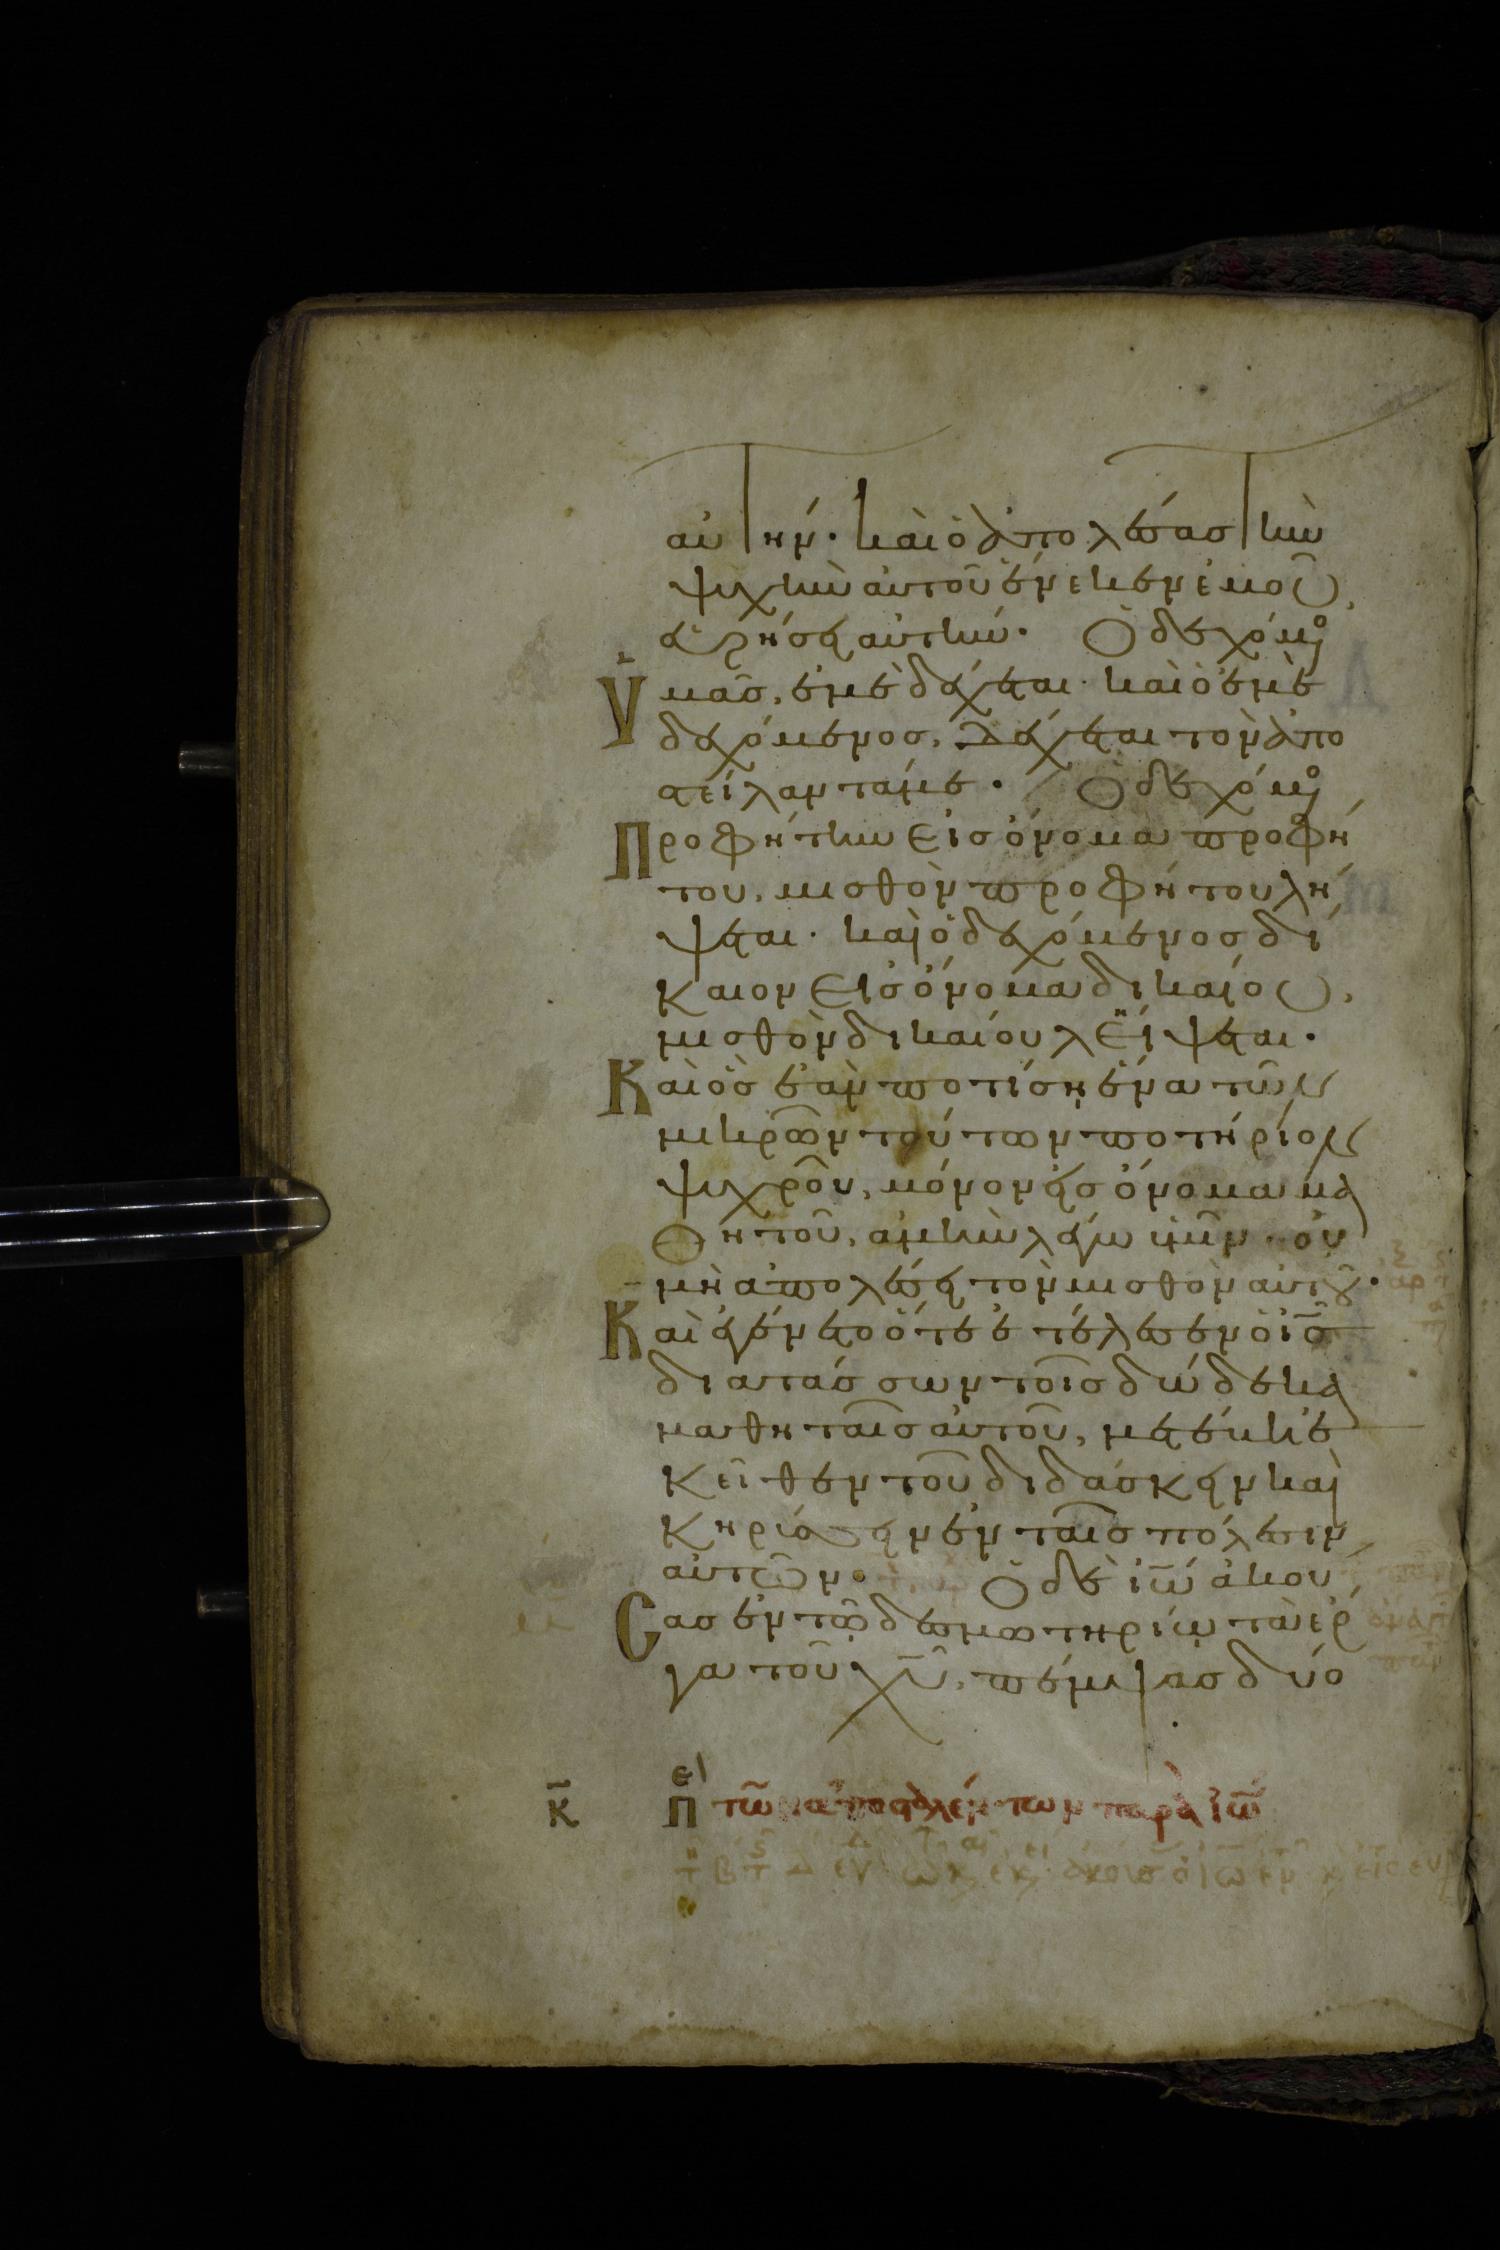 αὐτήν. καὶ ὁ ἀπολέσας τὴν
ψυχὴν αὐτοῦ ἕνεκεν ἐμοῦ,
εὑρήσει αὐτήν. Ὁ δεχόμενος
ὑμᾶς, ἐμὲ δέχεται. καὶ ὁ ἐμὲ
δεχόμενος, δέχεται τὸν ἀπο
στείλαντά με. Ὁ δεχόμενος
Προφήτην εἰς ὄνομα προφή
του, μισθὸν προφήτου λή
ψεται. καὶ ὁ δεχόμενος δί
καιον εἰς ὄνομα δικαίου,
μισθὸν δικαίου λείψεται.
Καὶ ὃς ἐὰν ποτίσῃ ἕνα τῶν
μικρῶν τούτων ποτήριον
ψυχροῦ, μόνον εἰς ὄνομα μα
θητοῦ, ἀμὴν λέγω ὑμῖν. οὐ
μὴ ἀπολέσει τὸν μισθὸν αὐτοῦ.
Καὶ ἐγένετο ὅτε ἐτέλεσεν ὁ ις̅
διατάσσων τοῖς δώδεκα
μαθηταῖς αὐτοῦ, μετέβη ἐ
κεῖθεν τοῦ διδάσκειν καὶ
κηρύσσειν ἐν ταῖς πόλεσιν
αὐτῶν. Ὁ δὲ ἰω̅ ἀκού
Σας ἐν τῷ δεσμωτηρίῳ τὰ ἔρ
γα τοῦ χυ̅, πέμψας δύο
κ̅ πει τῶν ἀποσταλέντων παρὰ ἰω̅